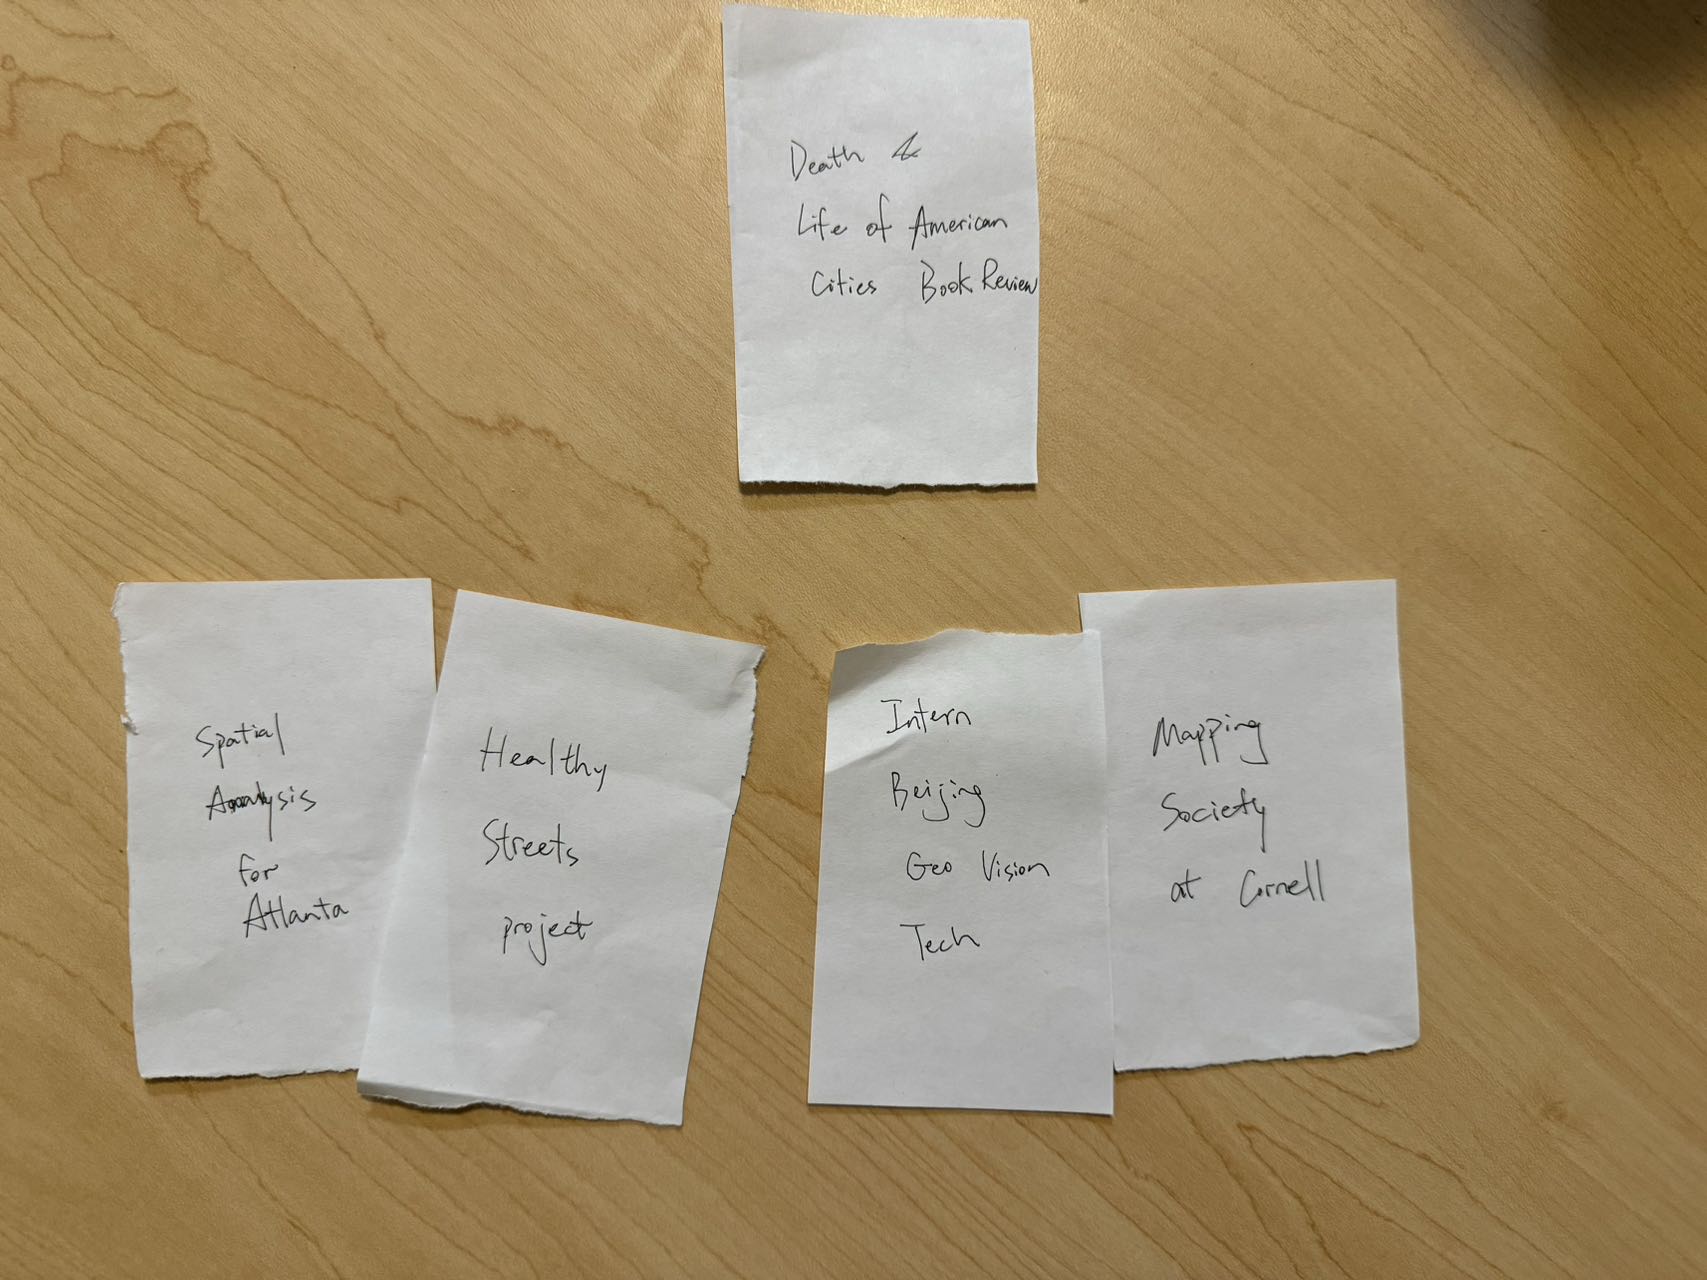 Death &
Life of American
Cities Book Review
Spatial
Analysis
for
Atlanta
Healthy
Streets
project
Intern
Beijing
Geo Vision
Tech
Mapping
Society
at Cornell